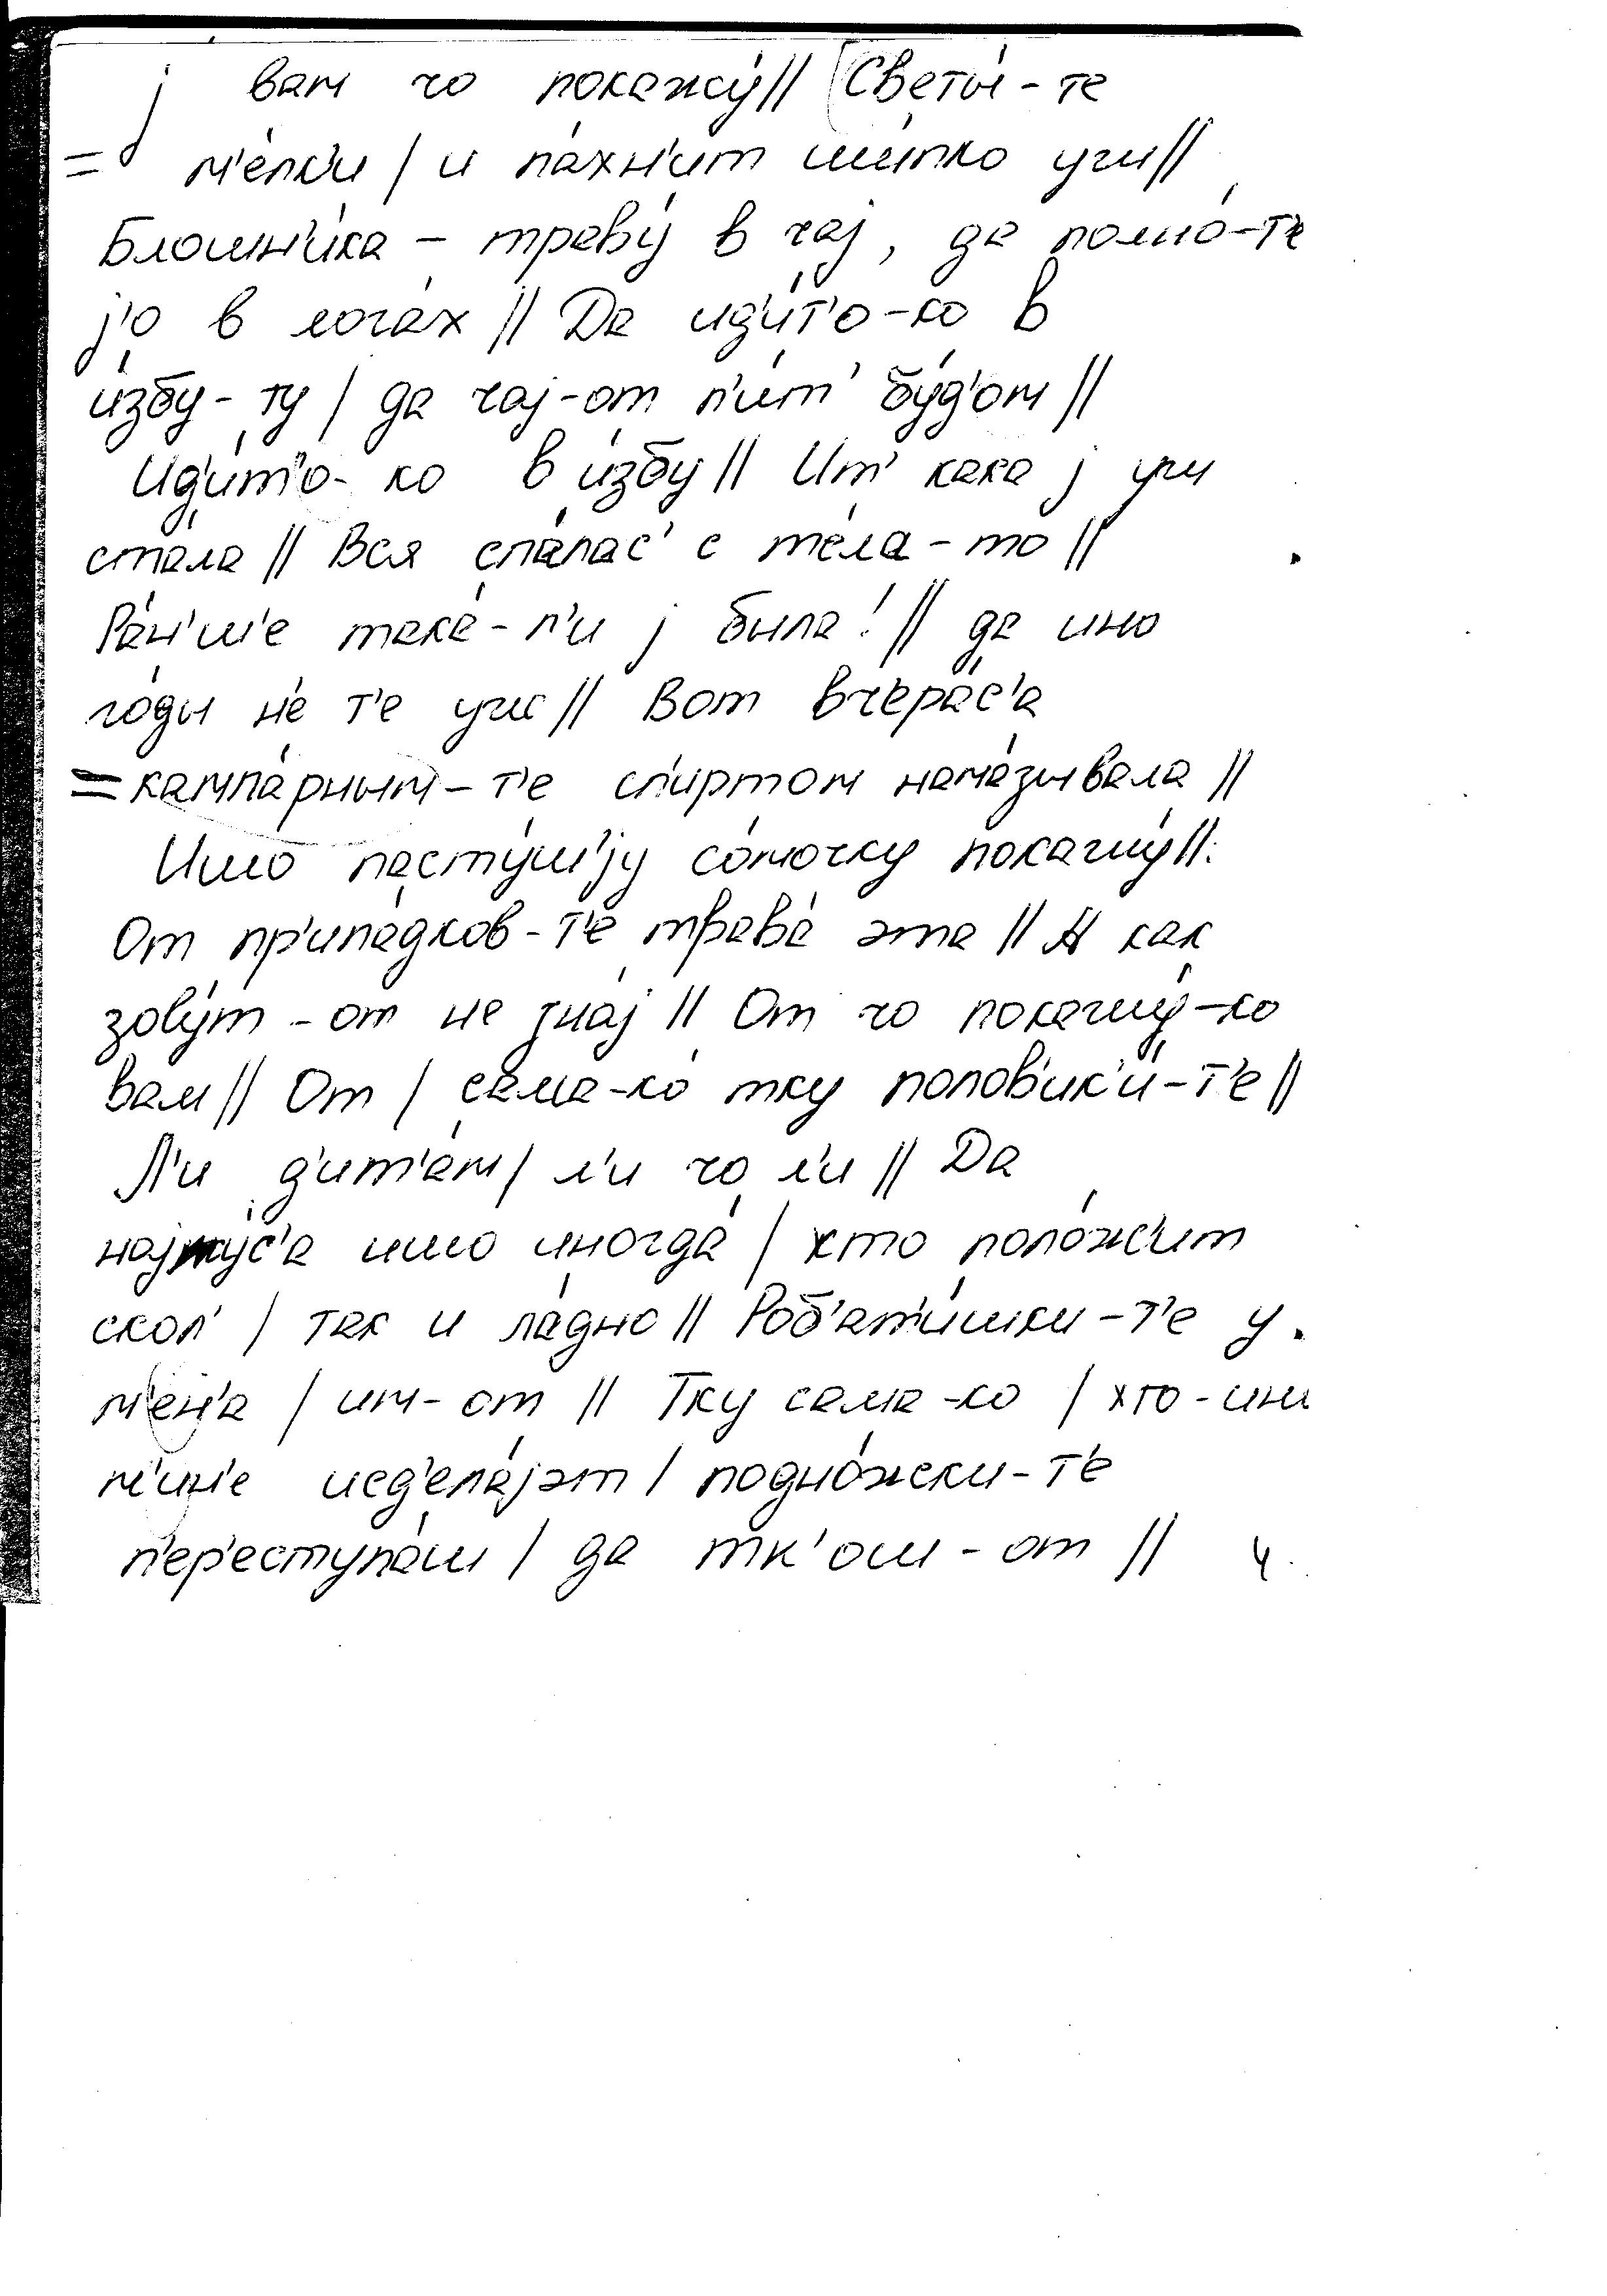 j вам чо покажу́ // Светы́-те
= м'е́лк'и / и па́хн'ит ши́пко учи //
Блошн'и́ка – траву́ в чај, да полно́-т'е
j'о в лога́х // Да ид'и́т'о-ко в
и́збу-ту / да чај-от п'ит' бу́д'ом //
Ид'и́т'о-ко в и́збу // Ит' кака j учи
ста́ла // Вся спа́лас' с те́ла-то //
Ра́н'ш'е така́-л'и j была! // да ино
го́ды н'е т'е учи // Вот вчера́с'а
= кампа́рным-т'е сп'иртом нама́зывала //
Ишо пасту́ш'jу со́мочку покачу́ //
От пр'ипа́дков-т'е трава́ эта // А как
зову́т-от не зна́j // От чо покачу́-ко
вам // От / сама-ко́ тку полов'ик'и́-т'е //
Л'и д'ит'а́м / л'и чо л'и // Да
најму́с'а ишо иногда́ / хто поло́жит
скол' / так и ла́дно // Роб'ат'и́шки-т'е у
м'ен'а / им-от // Тку сама-ко / хто-ини
м'ин'е исд'ела́јэт / подно́жки-т'е
п'ер'еступа́ш / да тк'ош-от // 4.